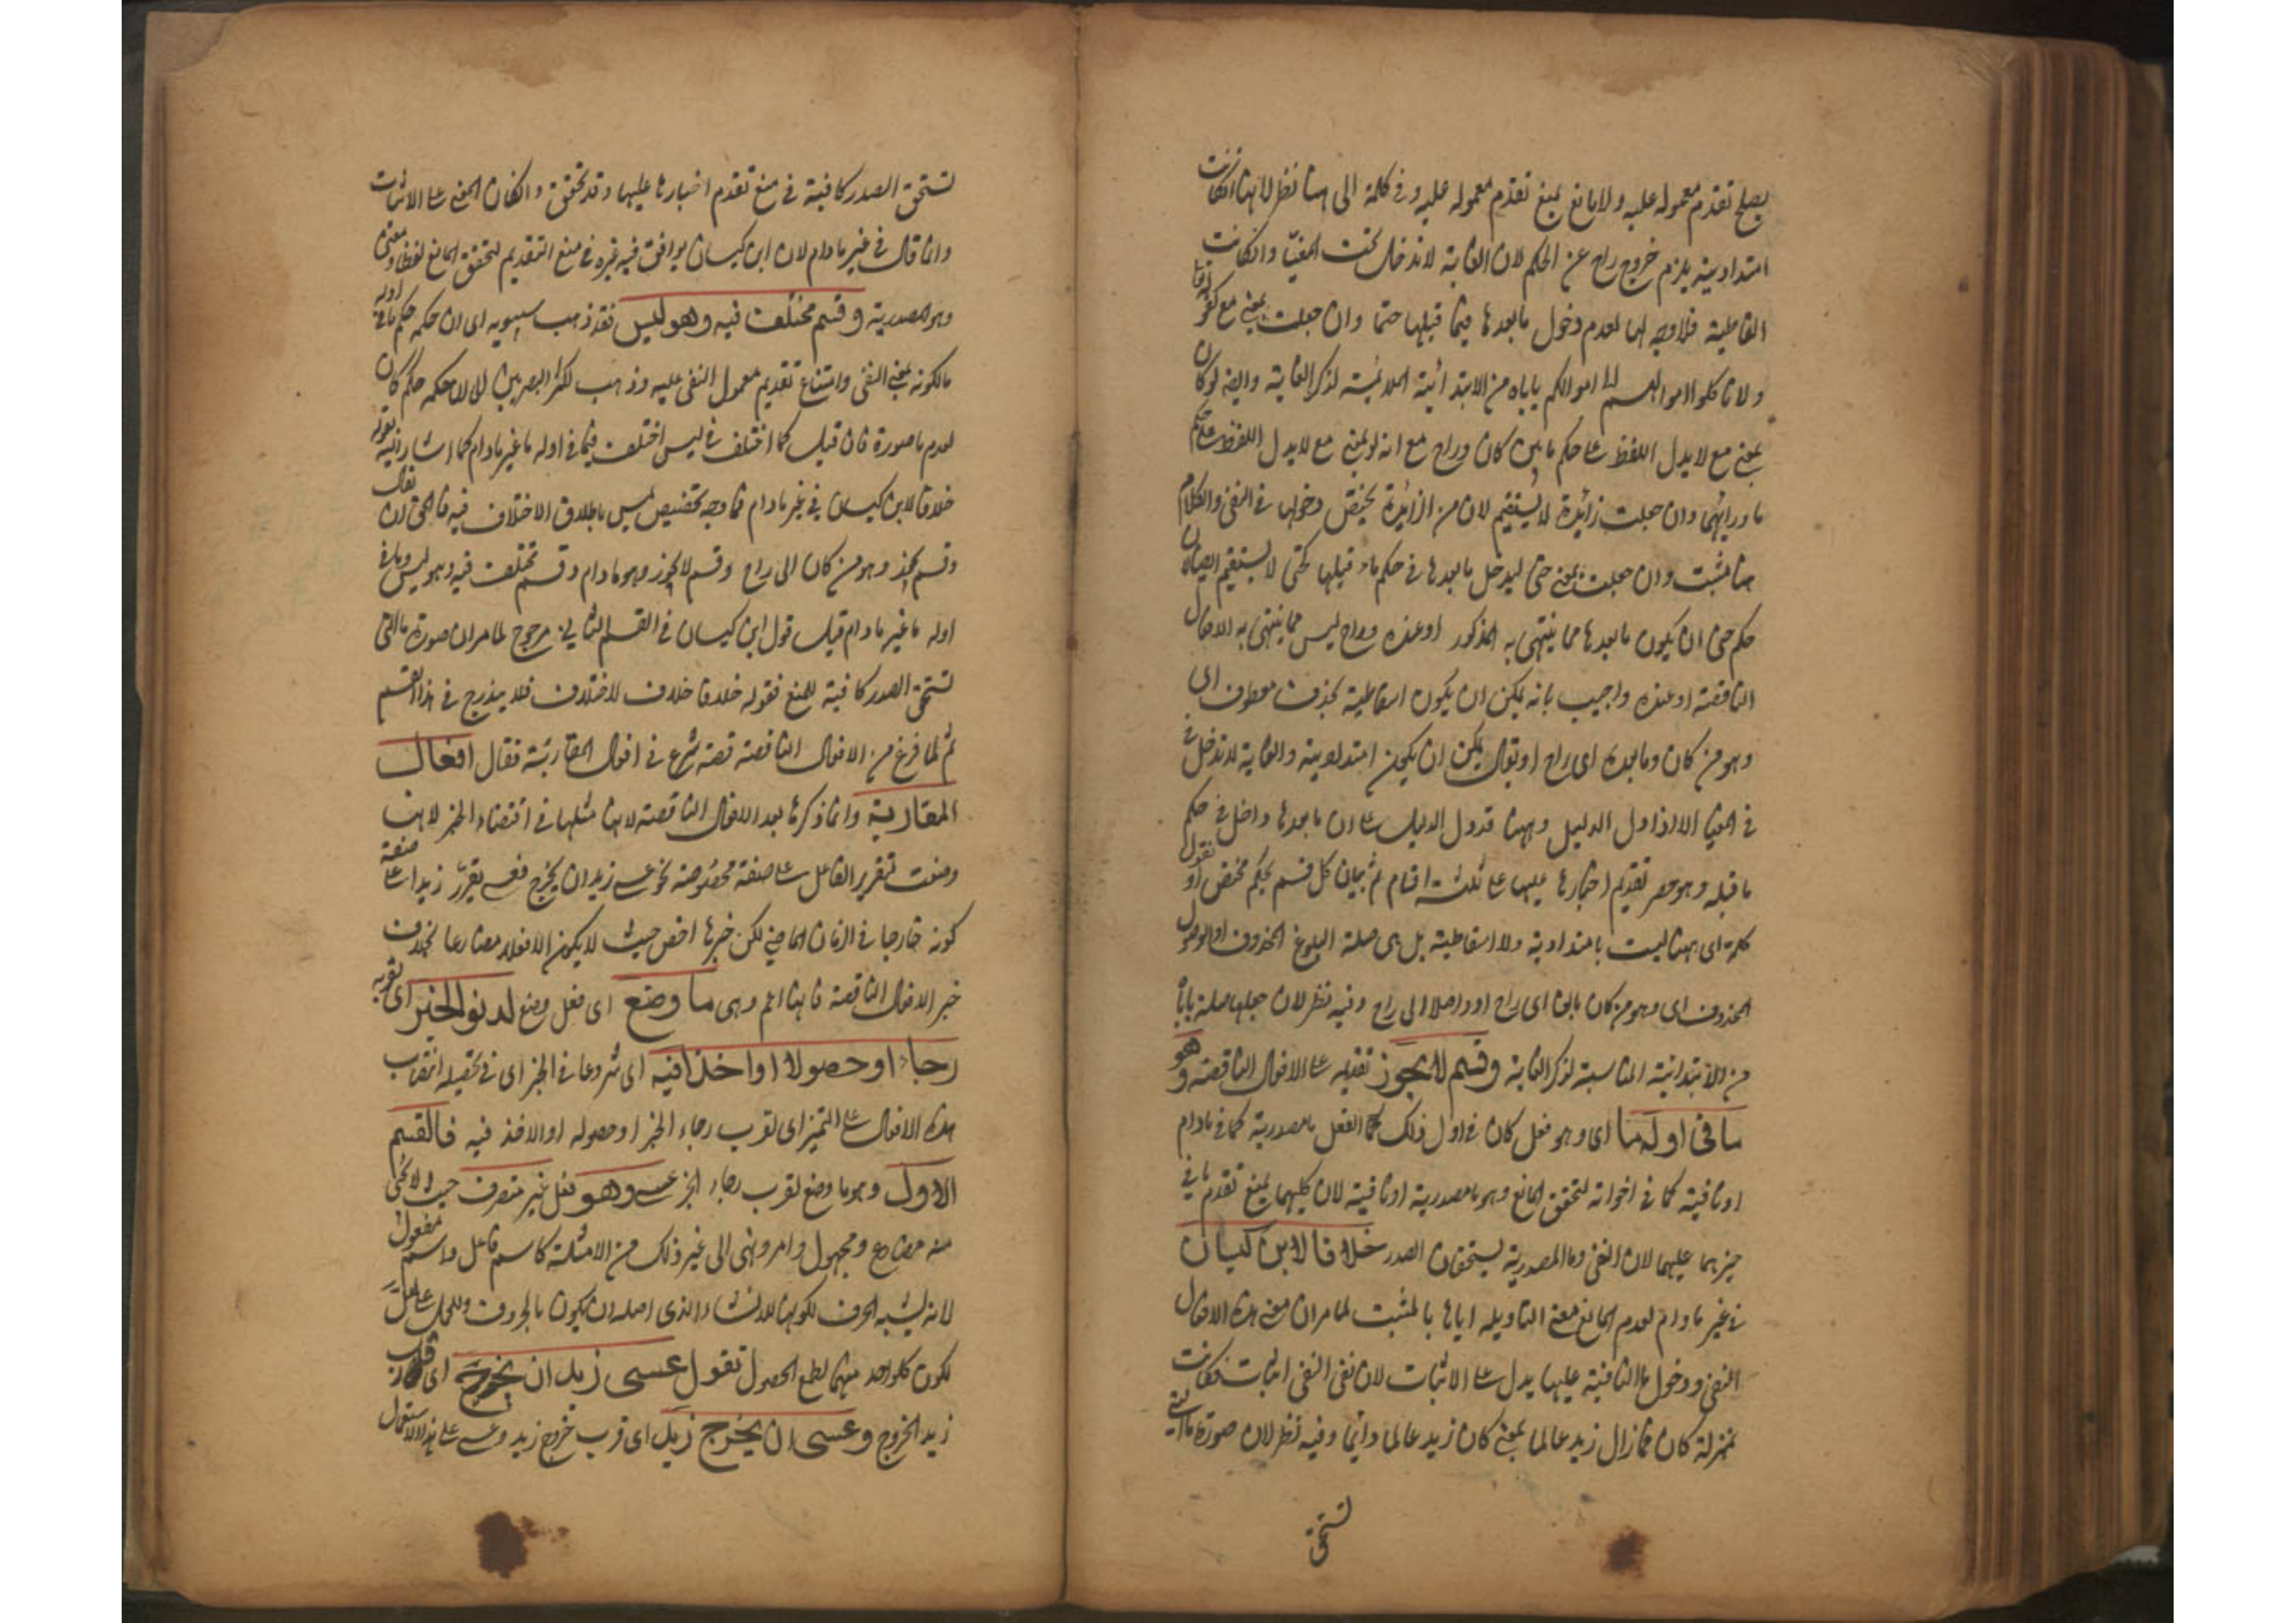 يصلح تقدم معموله عليه ولا مانع يمنع تقدم معموله عليه وفي كلمة الى ههنا نظر لانها ان كانت
امتدادية يلزم خروج راح عن الحكم لان الغاية لا تدخل تحت المغيا وان كانت
اسقاطية فلا وجه لها لعدم دخول ما بعدها فيما قبلها حتما وان جعلت بمعنى مع كقوله تعالى
ولا تاكلوا اموالهم الى اموالكم ياباه من الابتدائية الملائمة لذكر الغاية وايضا لو كان
بمعنى مع لا يدل اللفظ على حكم ما بين كان وراح مع انه لو بمعنى مع لا يدل اللفظ على حكم
ما ورائهما وان جعلت زائدة لا يستقيم لان من الزائدة يختص دخولها في النفي والكلام
ههنا مثبت وان جعلت بمعنى حتى ليدخل ما بعدها في حكم ما قبلها كحتى لا يستقيم ايضا لان
حكم حتى ان يكون ما بعدها مما ينتهى به المذكور او عنده وراح ليس مما ينتهى به الافعال
الناقصة او عنده واجيب بانه يمكن ان يكون اسقاطية بحذف معطوف اى
وهو من كان وما بعده اى راح او يقال يمكن ان يكون امتدادية والغاية لا تدخل
في المغيا الا اذا دل الدليل وههنا قد دل الدليل على ان ما بعدها داخل في حكم
ما قبله وهو حصر تقديم اخبارها عليها على ثلثة اقسام ثم بيان كل قسم بحكم مختص او نقول
كلمة اى ههنا ليست بامتدادية ولا اسقاطية بل هى صلة البلوغ المحذوف او الوصول
المحذوف اى وهو من كان بالغا اى راح او واصلا الى راح وفيه نظر لان جعلها صلة يابا
من الابتدائية المناسبة لذكر الغاية وقسم لا يجوز تقديمه على الافعال الناقصة وهو
ما فى اوله ما اى وهو فعل كان في اول ذلك الفعل ما مصدرية كما في مادام
او نافية كما في اخواته لتحقق المانع وهو ما مصدرية او نافية لان كليهما يمنع تقدم ما في
حيزهما عليهما لان النفي وما المصدرية يستحقان الصدر خلافا لابن كيسان
في غير مادام لعدم المانع معنى لتاويله اياها بالمثبت لما مر ان معنى هذه الافعال
النفي ودخول ما النافية عليها يدل على الاثبات لان نفى النفى اثبات فكانت
بمنزلة كان فمازال زيد عالما بمعنى كان زيد عالما دائما وفيه نظر لان صورة ما التي
تستحق
تستحق الصدر كافية في منع تقدم اخبارها عليها وقد تحقق وان كان المعنى على الاثبات
وانما قال في غير مادام لان ابن كيسان يوافق فيه غيره في منع التقديم لتحقق المانع لفظا ومعنى
وهو المصدرية وقسم مختلف فيه وهو ليس فقد ذهب سيبويه اى ان حكمه حكم ما في اوله
ما لكونه بمعنى النفى وامتناع تقديم معمول النفى عليه وذهب اكثر البصريين الى ان حكمه حكم كان
لعدم ما صورة فان قيل كما اختلف في ليس اختلف فيما في اوله ما غير مادام كما اشار اليه بقوله
خلافا لابن كيسان في غير مادام فما وجه تخصيص ليس باطلاق الاختلاف فيه فالحق ان يقال
وقسم يجوز وهو من كان الى راح وقسم لا يجوز وهو مادام وقسم مختلف فيه وهو ليس وما في
اوله ما غير مادام قيل قول ابن كيسان في القسم الثاني مرجوح لما مر ان صورة ما التى
تستحق الصدر كافية للمنع فقوله خلافا خلاف لا اختلاف فلا يندرج في هذا القسم
ثم لما فرغ من الافعال الناقصة شرع في افعال المقاربة فقال افعال
المقاربة وانما ذكرها بعد الافعال الناقصة لانها مثلها في اقتضاء الخبر لانها
وضعت لتقرير الفاعل على صفة مخصوصة نحو عسى زيد ان يخرج فعسى يقرر زيدا على صفة
كونه خارجا في الزمان الماضي لكن خبرها اخص حيث لا يكون الا فعلا مضارعا بخلاف
خبر الافعال الناقصة فانها اعم وهى ما وضع اى فعل وضع لدنو الخبر اى لقربه
رجاء او حصولا او اخذا فيه اى شروعا في الخبر اى في تحصيله انتصاب
هذه الافعال على التميز اى لقرب رجاء الخبر او حصوله او الاخذ فيه فالقسم
الاول وهو ما وضع لقرب رجاء الخبر عسى وهو فعل غير متصرف حيث لا يجئ
منه مضارع ومجهول وامر ونهى الى غير ذلك من الامثلة كاسم فاعل واسم مفعول
لانه يشبه الحرف لكونها للانشاء الذى اصله ان يكون بالحروف وللحمل على لعل
لكون كل واحد منهما لطمع الحصول تقول عسى زيد ان يخرج اى قارب
زيد الخروج وعسى ان يخرج زيد اى قرب خروج زيد وعسى على هذا الاستعمال